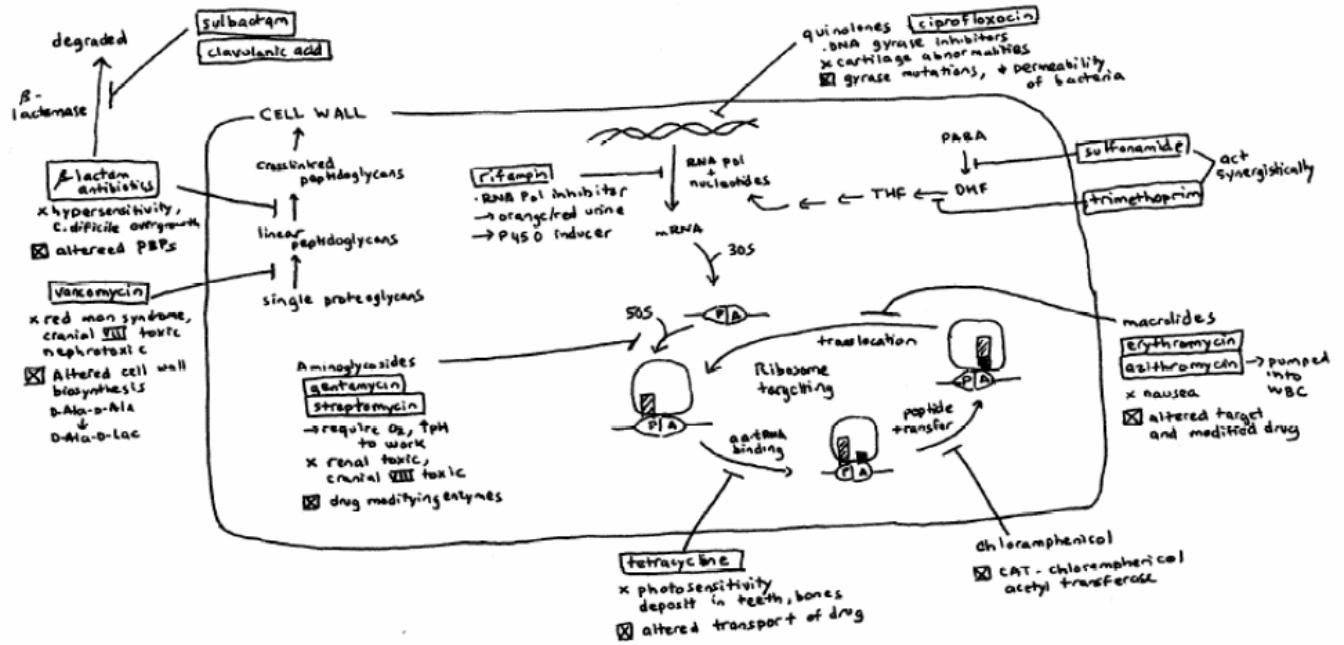 sulbactam
clavulanic acid
degraded
β-
lactamase
β lactam
antibiotics
x hypersensitivity,
C. difficile overgrowth
☒ altereed PBPs
vancomycin
x red man syndrome,
cranial VIII toxic
nephrotoxic
☒ Altered cell wall
biosynthesis
D-Ala-D-Ala
↓
D-Ala-D-Lac
CELL WALL
crosslinked
peptidoglycans
linear
peptidoglycans
single proteoglycans
quinolones ciprofloxocin
·DNA gyrase inhibitors
x cartilage abnormalities
☒ gyrase mutations, ↓ permeability
of bacteria
rifampin
·RNA Pol inhibitor
→ orange/red urine
→ P450 inducer
RNA pol
+
nucleotides
mRNA
30S
PABA
DHF
THF
sulfonamide
trimethoprim
act
synergistically
50S
P A
Aminoglycosides
gentamycin
streptomycin
→ require O₂, ↑pH
to work
x renal toxic,
cranial VIII toxic
☒ drug modifying enzymes
translocation
Ribosome
targetting
P A
P A
aa-tRNA
binding
P A
peptide
transfer
macrolides
erythromycin
azithromycin → pumped
into
WBC
x nausea
☒ altered target
and modified drug
tetracycline
x photosensitivity
deposit in teeth, bones
☒ altered transport of drug
chloramphenicol
☒ CAT - chloramphericol
acetyl transferase